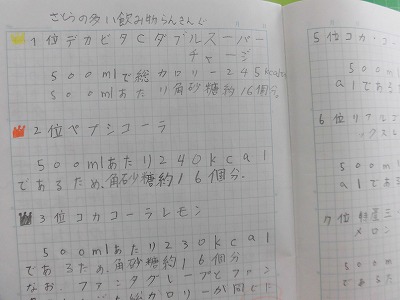 さとうの多い飲み物らんきんぐ
1位デカビタCダブルスーパー
チャージ
500mlで総カロリー245kcal
500mlあたり角砂糖約16個分。
2位ペプシコーラ
500mlあたり240kcal
であるため、角砂糖約16個分.
3位コカコーラレモン
500mlあたり230kcal
であるため、角砂糖約16個分
なお、ファンタグレープとファン
総カロリーが同じ
5位コカ・コー
500ml
alである
6位リアルゴ
ックスレ
500m
alであ
7位
メロン
500m
であるた